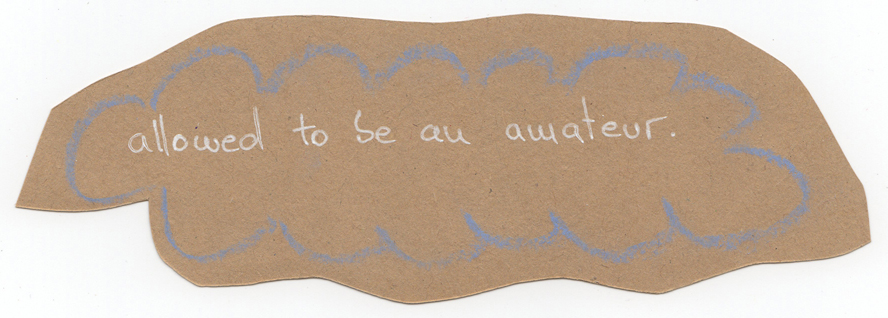 allowed to be an amateur.